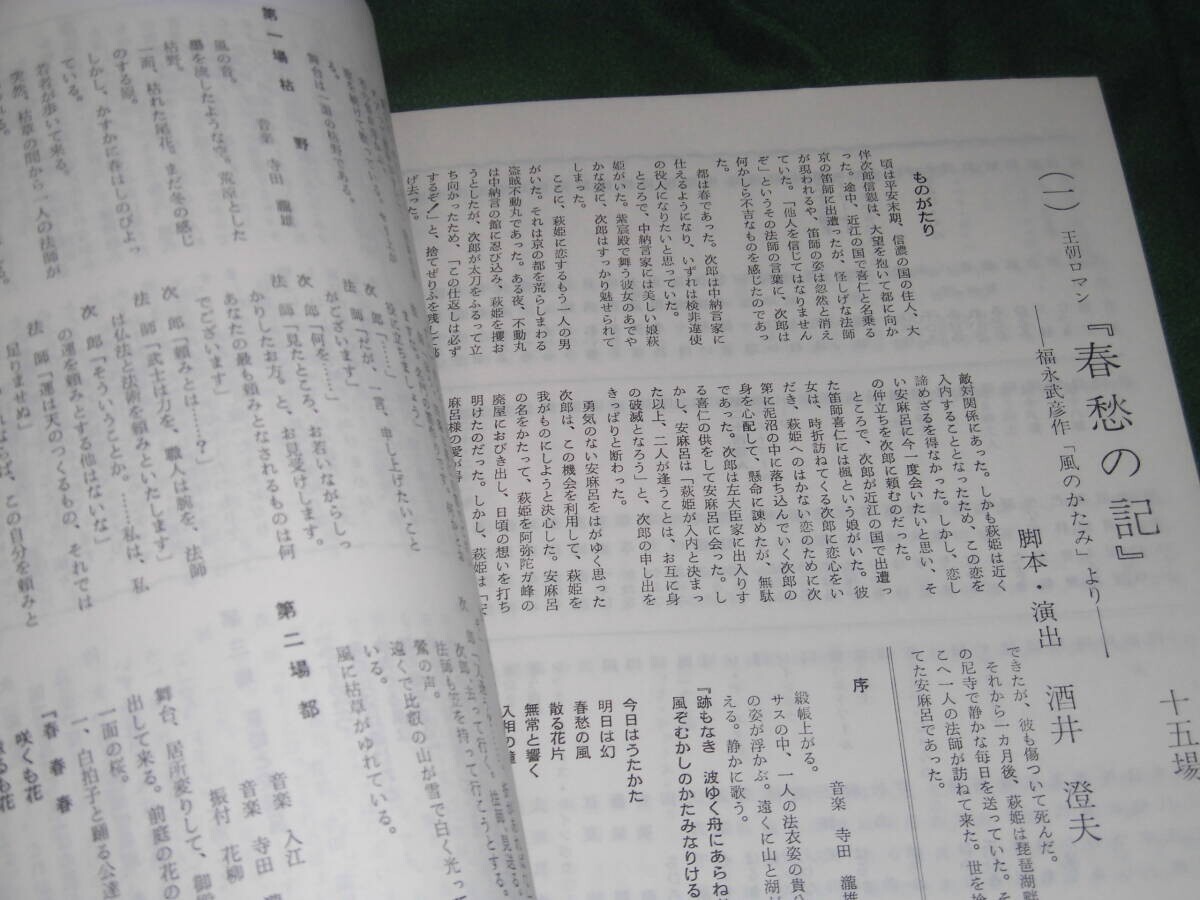 (一)
王朝ロマン
『春愁の記』
――福永武彦作「風のかたみ」より――
脚本・演出　酒井　澄夫
十五場
ものがたり
頃は平安末期、信濃の国の住人、大
伴次郎信親は、大望を抱いて都に向か
った。途中、近江の国で喜仁と名乗る
京の笛師に出遭ったが、怪しげな法師
が現われるや、笛師の姿は忽然と消え
ていた。「他人を信じてはなりません
ぞ」というその法師の言葉に、次郎は
何かしら不吉なものを感じたのであっ
た。
都は春であった。次郎は中納言家に
仕えるようになり、いずれは検非違使
の役人になりたいと思っていた。
ところで、中納言家には美しい娘萩
姫がいた。紫宸殿で舞う彼女のあでや
かな姿に、次郎はすっかり魅せられて
しまった。
ここに、萩姫に恋するもう一人の男
がいた。それは京の都を荒らしまわる
盗賊不動丸であった。ある夜、不動丸
は中納言の館に忍び込み、萩姫を攫お
うとしたが、次郎が太刀をふるって立
ち向かったため、「この仕返しは必ず
するぞ！」と、捨てぜりふを残して逃
げ去った。
敵対関係にあった。しかも萩姫は近く
入内することとなったため、この恋を
諦めざるを得なかった。しかし、恋し
い安麻呂に今一度会いたいと思い、そ
の仲立ちを次郎に頼むのだった。
ところで、次郎が近江の国で出遭っ
た笛師喜仁には楓という娘がいた。彼
女は、時折訪ねてくる次郎に恋心をい
だき、萩姫へのはかない恋のために次
第に泥沼の中に落ち込んでいく次郎の
身を心配して、懸命に諫めたが、無駄
であった。次郎は左大臣家に出入りす
る喜仁の供をして安麻呂に会った。し
かし、安麻呂は「萩姫が入内と決まっ
た以上、二人が逢うことは、お互に身
の破滅となろう」と、次郎の申し出を
きっぱりと断わった。
勇気のない安麻呂をはがゆく思った
次郎は、この機会を利用して、萩姫を
我がものにしようと決心した。安麻呂
の名をかたって、萩姫を阿弥陀ガ峰の
廃屋におびき出し、日頃の想いを打ち
明けたのだった。しかし、萩姫は「安
麻呂様の愛が
できたが、彼も傷ついて死んだ。
それから一カ月後、萩姫は琵琶湖畔
の尼寺で静かな毎日を送っていた。そ
こへ一人の法師が訪ねて来た。世を捨
てた安麻呂であった。
序
音楽　寺田　瀧雄
緞帳上がる。
サスの中、一人の法衣姿の貴公
の姿が浮かぶ。遠くに山と湖が
える。静かに歌う。
『跡もなき　波ゆく舟にあらね
風ぞむかしのかたみなりける
今日はうたかた
明日は幻
春愁の風
散る花片
無常と響く
入相の鐘
舞台は一面の枯野である。
第一場　枯野
音楽　寺田　瀧雄
風の音。
墨を流したような空。荒涼とした
枯野。
一面、枯れた尾花。まだ冬の感じ
のする原。
しかし、かすかに春はしのびよっ
ている。
若者が歩いて来る。
突然、枯草の間から一人の法師が
法　師「だが、一言、申し上げたいこと
がございます」
次　郎「何を……」
法　師「見たところ、お若いながらしっ
かりしたお方。と、お見受けします。
あなたの最も頼みとなされるものは何
でございます」
次　郎「頼みとは……？」
法　師「武士は力を、職人は腕を、法師
は仏法と法術を頼みと、たします」
次　郎「そういうことか。……私は、私
の運を頼みとする他はないな」
法　師「運は天のつくるもの、それでは
足りませぬ」
ればならば、この自分を頼みと
鶯の声。
遠くで比叡の山が雪で白く光っ
ている。
風に枯草がゆれている。
第二場　都
音楽　入江
音楽　寺田
振付　花柳
舞台、居所変りして、御
出して来る。前庭の花の
一面の桜。
一、白拍子と踊る公達
「春　春　春
咲くも花